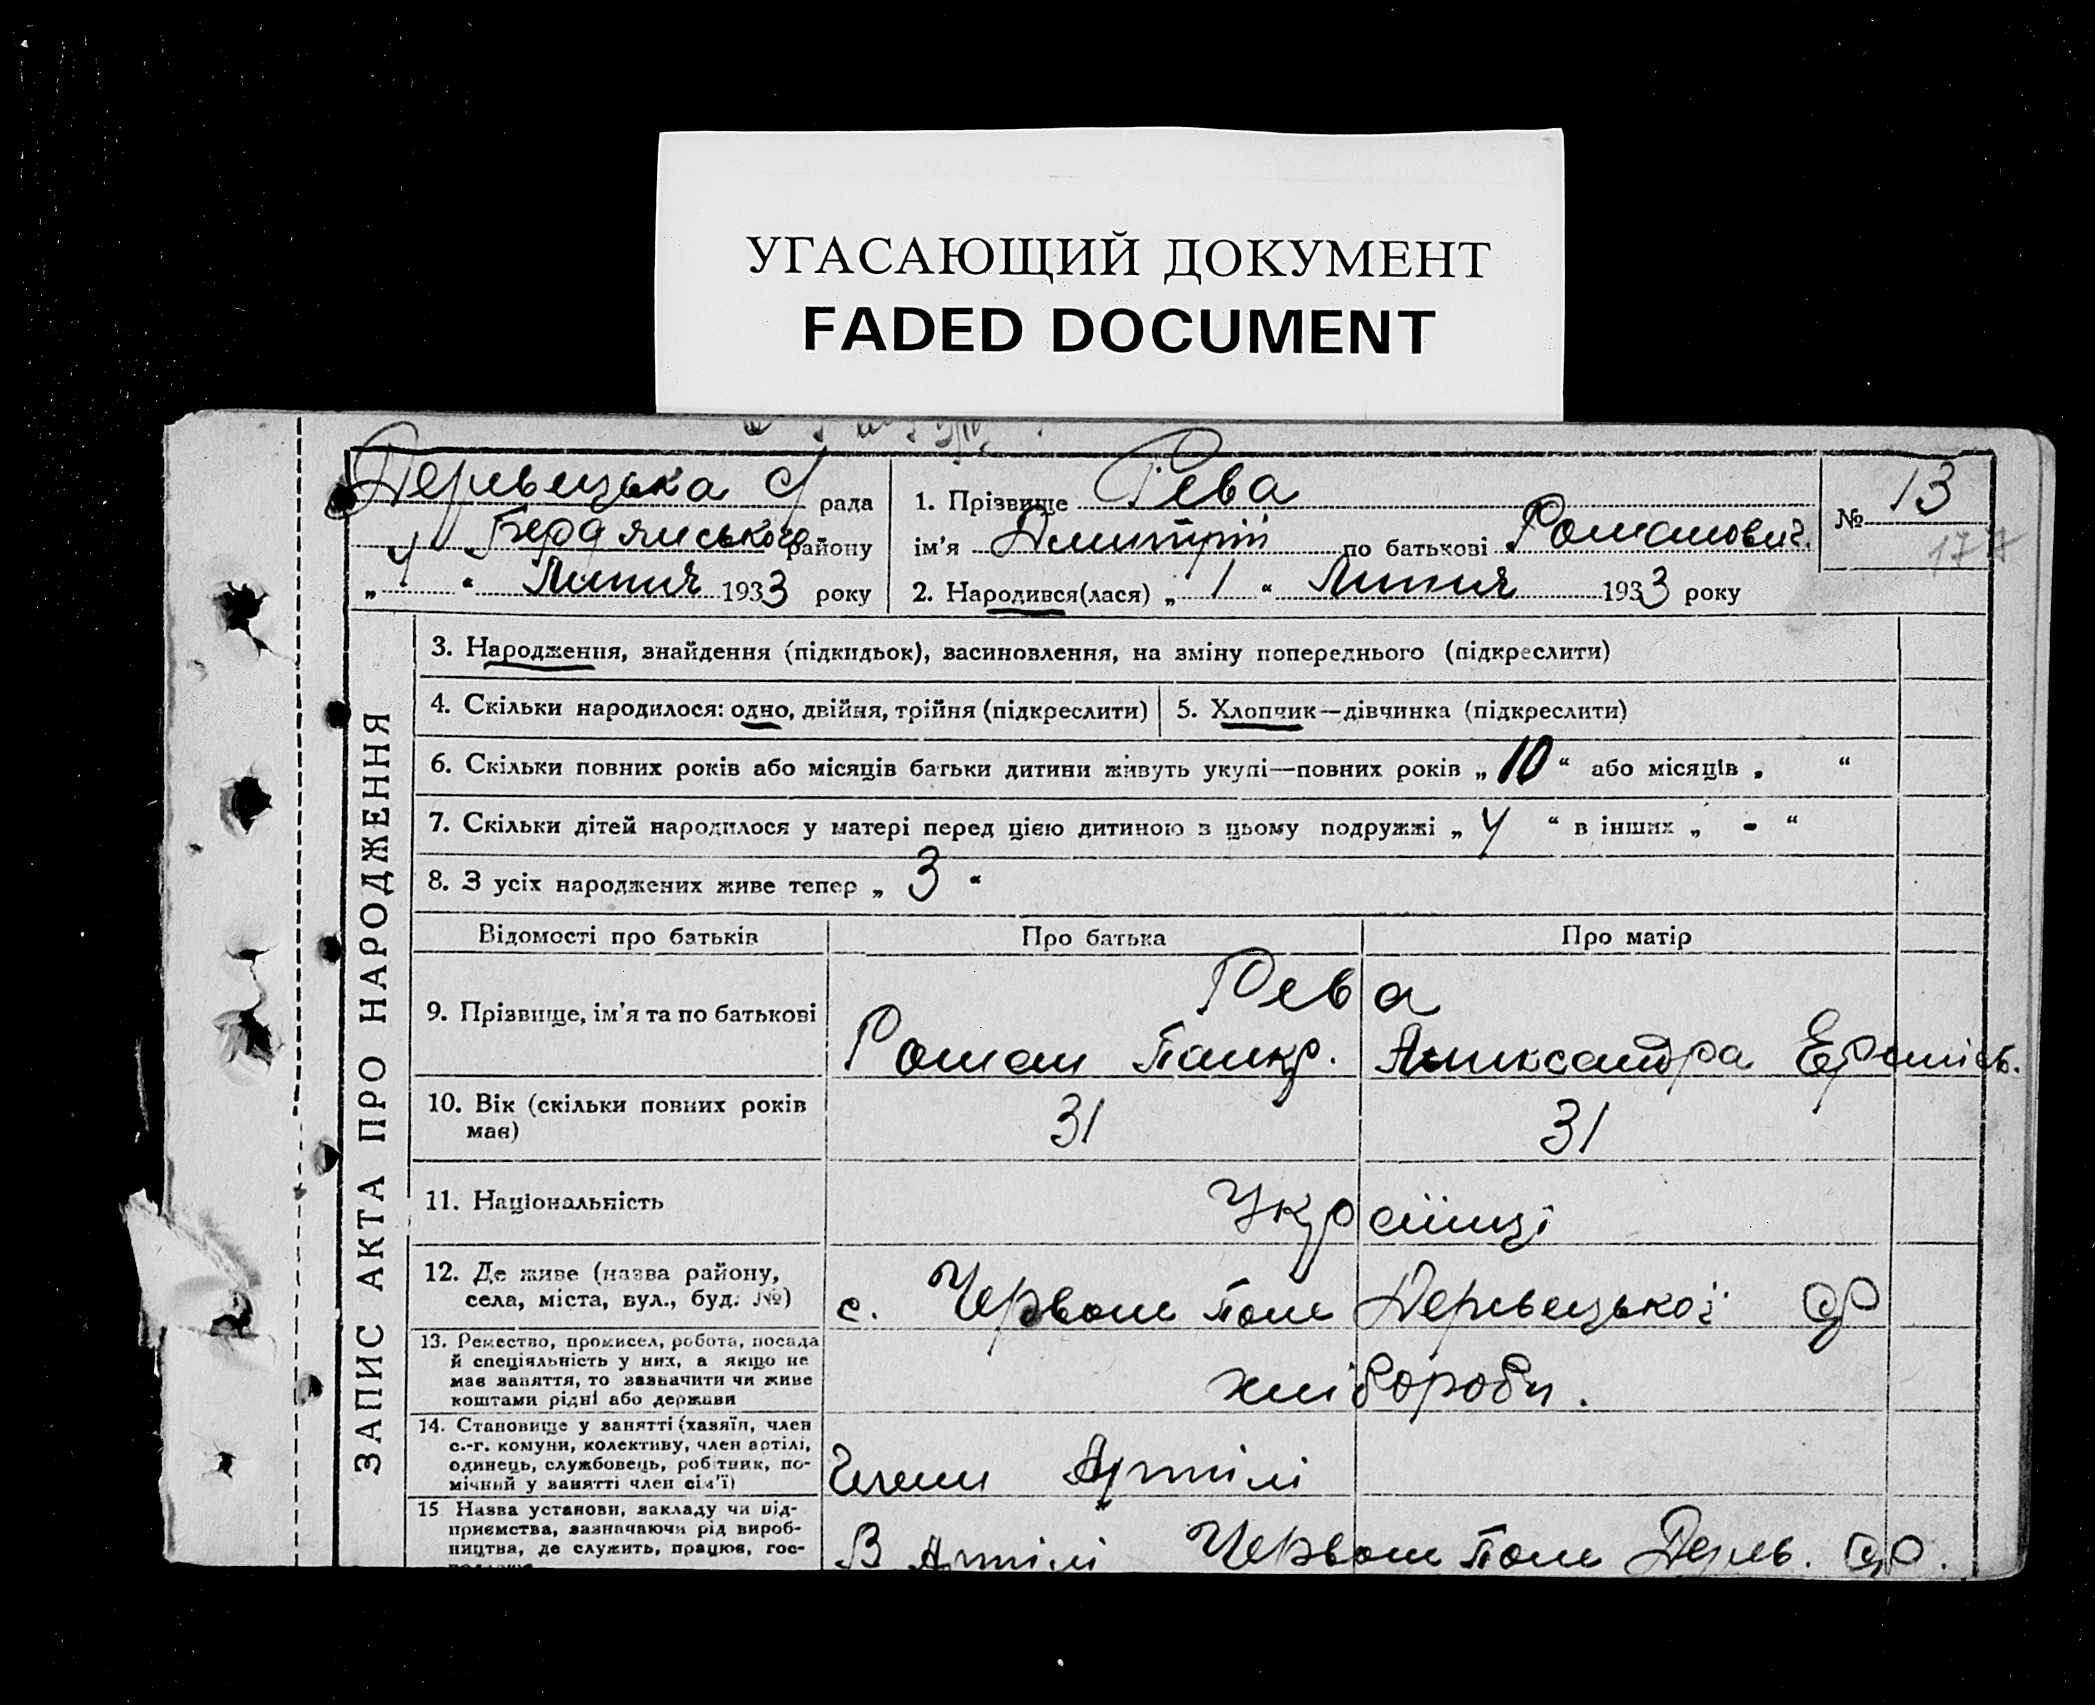 УГАСАЮЩИЙ ДОКУМЕНТ
FADED DOCUMENT
Дермецька С/рада
Бердянського району
„ 4 “ Липня 1933 року
1. Прізвище Рева
ім'я Дмитрій по батькові Романович.
2. Народився(лася) „ 1 “ Липня 1933 року
№ 13
177
ЗАПИС АКТА ПРО НАРОДЖЕННЯ
3. Народження, знайдення (підкидьок), засиновлення, на зміну попереднього (підкреслити)
4. Скільки народилося: одно, двійня, трійня (підкреслити)
5. Хлопчик—дівчинка (підкреслити)
6. Скільки повних років або місяців батьки дитини живуть укупі—повних років „ 10 “ або місяців „ “
7. Скільки дітей народилося у матері перед цією дитиною з цьому подружжі „ 4 “ в інших „ - “
8. З усіх народжених живе тепер „ 3 “
Відомості про батьків
Про батька
Про матір
9. Прізвище, ім'я та по батькові
Рева
Роман Панкр. Александра
10. Вік (скільки повних років
має)
31
31
11. Національність
Українці
12. Де живе (назва району,
села, міста, вул., буд. №)
с. Червоне Поле С/Р
13. Ремество, промисел, робота, посада
й спеціяльність у них, а якщо не
має заняття, то зазначити чи живе
коштами рідні або держави
хлібороби.
14. Становище у занятті (хазяїн, член
с.-г. комуни, колективу, член артілі,
одинець, службовець, робітник, по-
мічний у занятті член сім'ї)
Члени Артілі
15 Назва установи, закладу чи під-
приємства, зазначаючи рід вироб-
ництва, де служить, працює, гос-
В Артілі Червоне Поле С/Р.